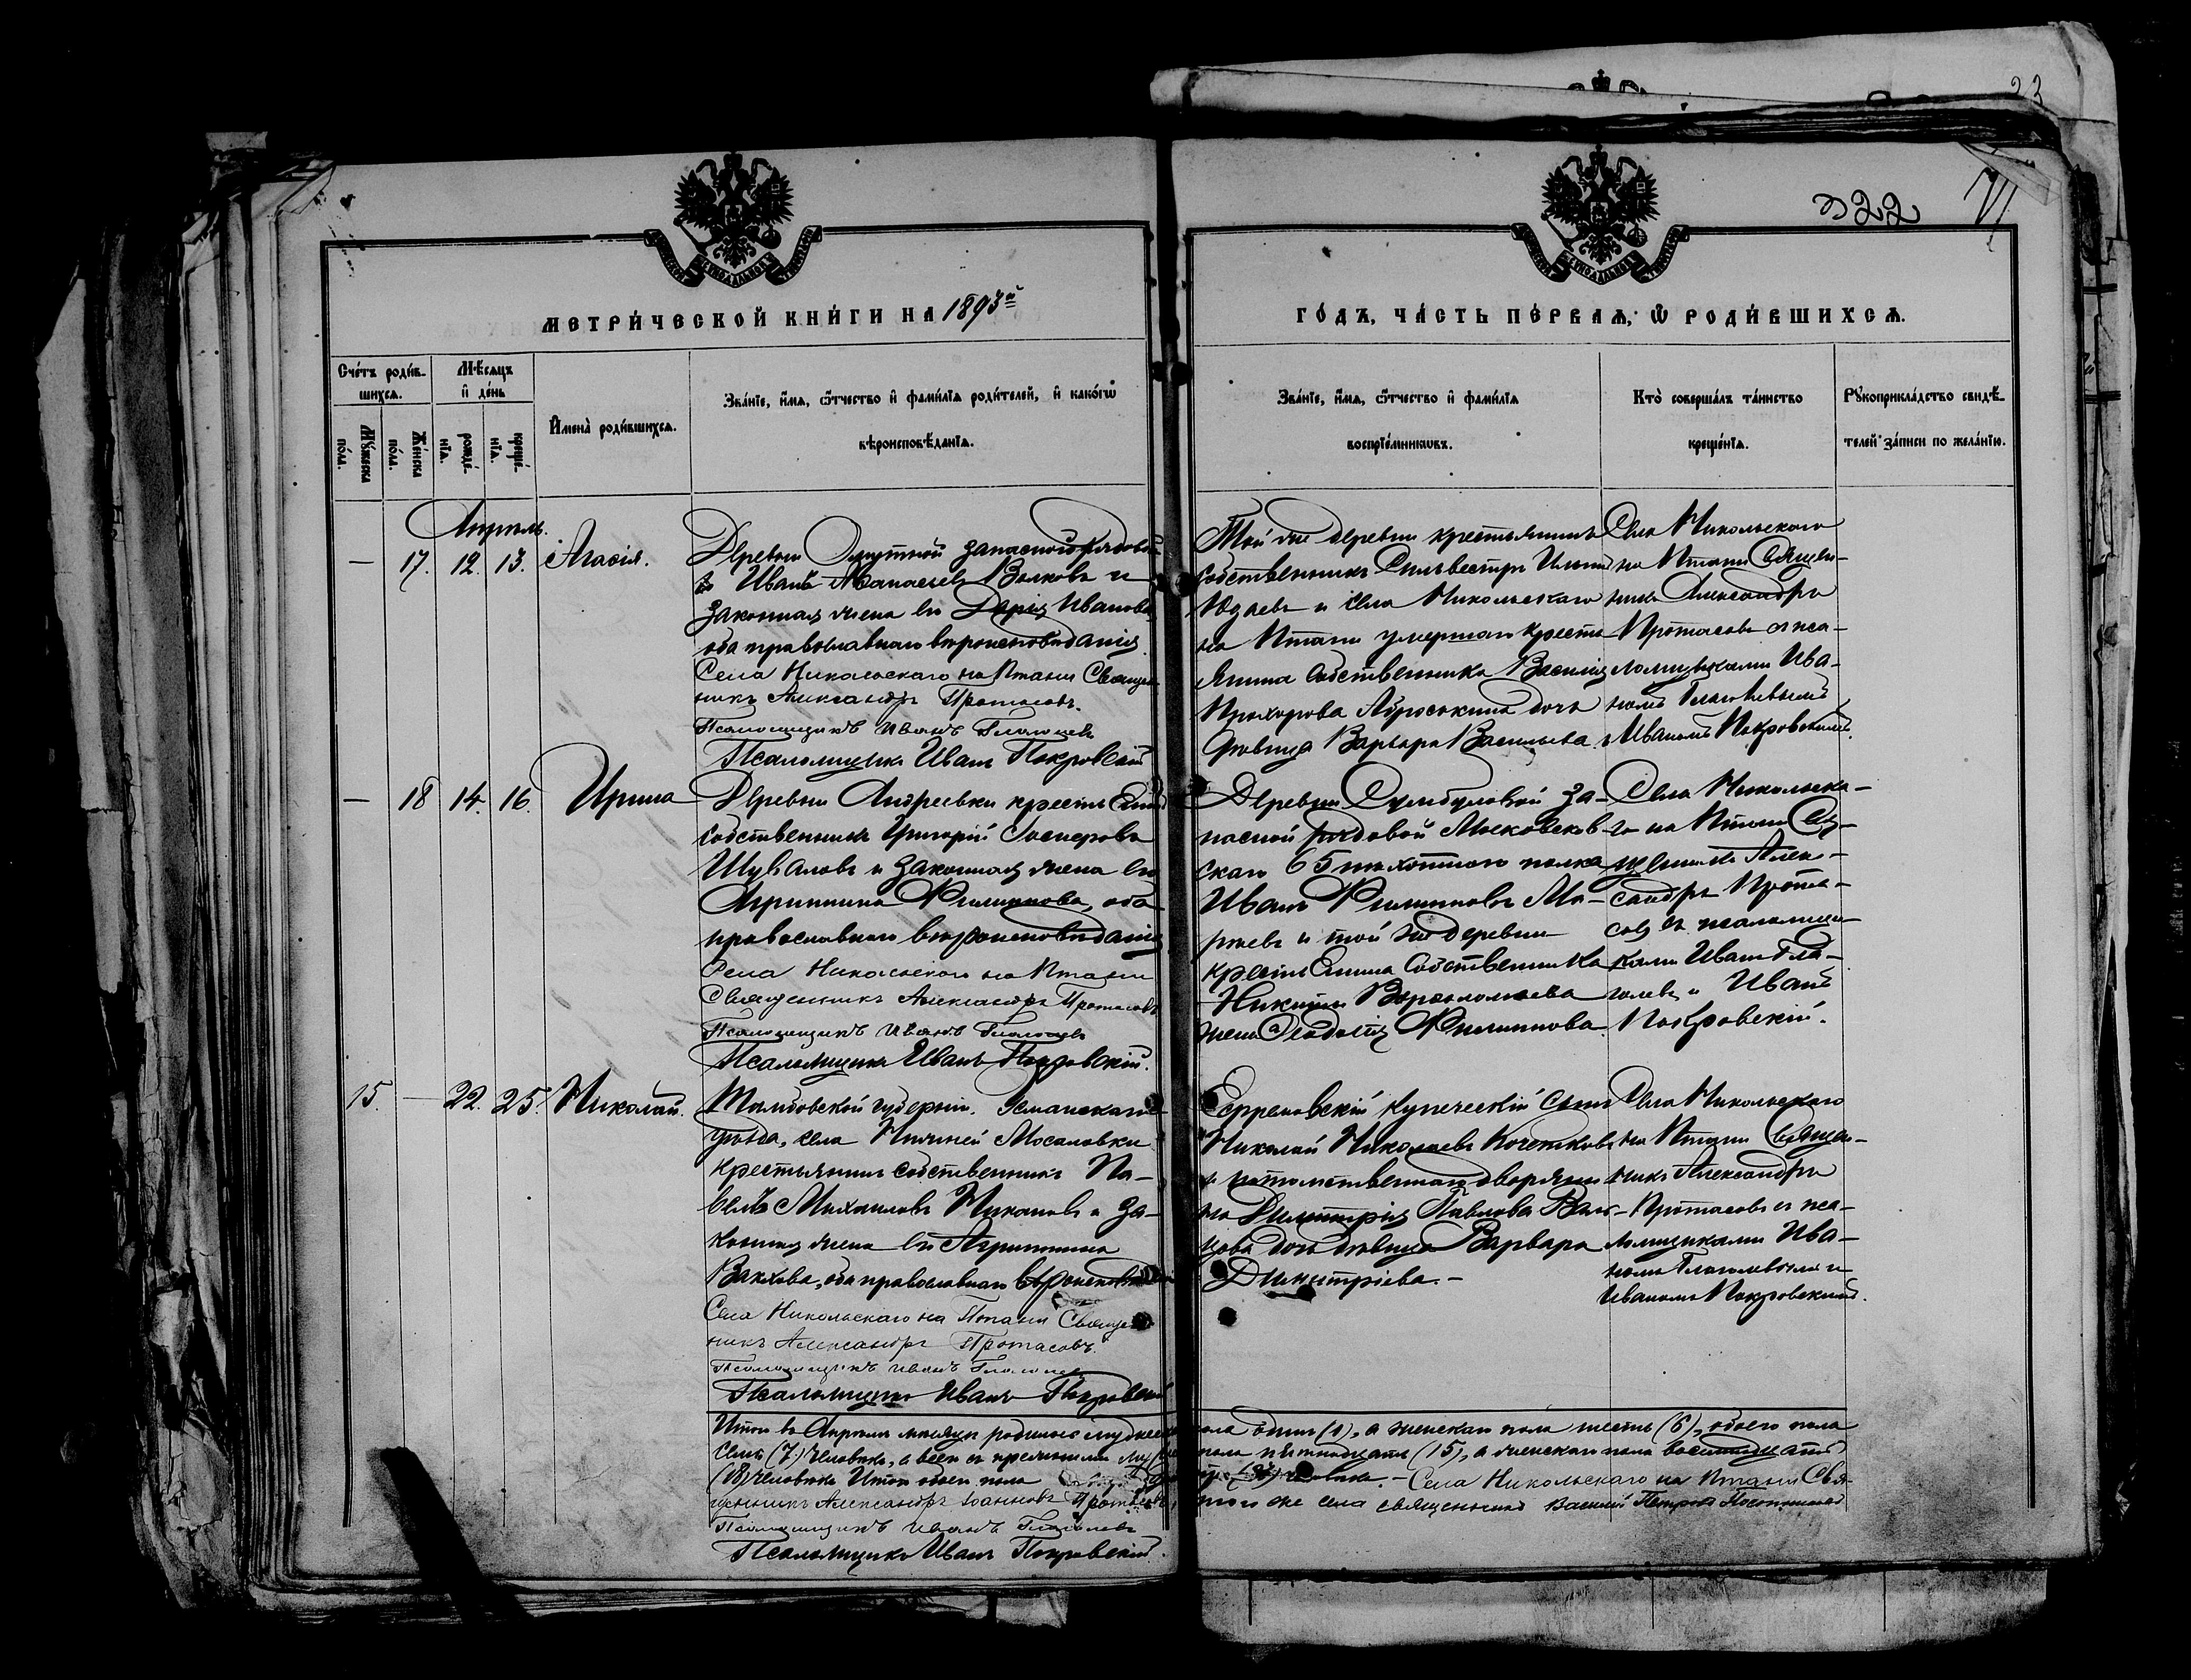 23
322
МЕТРИ́ЧЕСКОЙ КНИ́ГИ НА 1893й
ГО́ДЪ, ЧА́СТЬ ПЕ́РВАѦ, Ѡ РОДИ́ВШИХСѦ.
Сче́тъ роди́в-
шихсѧ.
Мꙋ́жеска по́ла.
Же́нска по́ла.
Мѣ́сѧцъ
и҆ де́нь
рожде́-
нїѧ.
креще́-
нїѧ.
И҆мена̀ роди́вшихсѧ.
Зва́нїе, и҆́мѧ, ѻ҆́тчество и҆ фами́лїѧ роди́телей, и҆ како́гѡ
вѣроисповѣ́данїѧ.
Зва́нїе, и҆́мѧ, ѻ҆́тчество и҆ фами́лїѧ
воспрїе́мникѡвъ.
Кто̀ соверша́лъ та́инство
креще́нїѧ.
Рꙋкоприкла́дство свидѣ́-
телей за́писи по жела́нїю.
Апрѣль.
— 17. 12. 13. Агаѳія.
Деревни запаснаго рядовой
Иванъ Аѳанасьевъ Волковъ и
законная жена его Дарія Иванова
оба православнаго вѣроисповѣданія.
Села Никольскаго на Птани Священ
никъ Александръ Протасовъ.
Псаломщикъ Иванъ Глаголевъ
Псаломщикъ Иванъ Покровскій
Той же деревни крестьянинъ
собственникъ Сильвестръ Ильинъ
Юдаевъ и села Никольскаго
на Птани умершаго кресть
янина собственника Василія
Прохорова Аброськина дочь
дѣвица Варвара Васильева.
Села Никольскаго
на Птани Священ-
никъ Александръ
Протасовъ съ пса-
ломщиками Ива-
номъ Глаголевымъ
и Иваномъ Покровскимъ.
— 18 14. 16. Ирина
Деревни Андреевки крестьянинъ
собственникъ Григорій
Шуваловъ и законная жена его
Агриппина Филиппова, оба
православнаго вѣроисповѣданія
Села Никольскаго на Птани
Священникъ Александръ Протасовъ
Псаломщикъ Иванъ Глаголевъ
Псаломщикъ Иванъ Покровскій.
Деревни Сумбуловой за-
пасной рядовой Московскаго
65 пѣхотнаго полка
Иванъ Филипповъ
и той же деревни
крестьянина собственника
Никиты Варѳоломѣева
жена Ѳеодосія Филиппова.
Села Никольска-
го на Птани Свя-
щенникъ Алек-
сандръ Прота-
совъ съ псаломщи-
ками Иванъ Гла-
голевъ и Иванъ
Покровскій.
15. — 22. 25. Николай.
Тамбовской губерніи. Усманскаго
уѣзда, села Нижней Мосаловки
крестьянинъ собственникъ Па-
велъ Михаиловъ и за-
конная жена его Агриппина
оба православнаго вѣроисповѣданія
Села Никольскаго на Птани Священ
никъ Александръ Протасовъ.
Псаломщикъ Иванъ Глаголевъ
Псаломщикъ Иванъ Покровскій
Ефремовскій купеческій сынъ
Николай Николаевъ Кочетковъ
и потомственнаго дворяни
на Димитрія Павлова
дочь дѣвица Варвара
Димитріева.-
Села Никольскаго
на Птани Священ-
никъ Александръ
Протасовъ съ пса-
ломщиками Ива-
номъ Глаголевымъ и
Иваномъ Покровскимъ.
Итого въ Апрѣлѣ мѣсяцѣ родилось мужеска пола одинъ (1), а женскаго пола шесть (6), обоего пола
семь (7) человѣкъ, а всего съ прежними пола пятнадцать (15), а женскаго пола восемнадцать
(18) человѣкъ Итого обоего пола Села Никольскаго на Птани Свя-
щенникъ Александръ Іоанновъ Протасовъ, того же села священникъ Василій Петровъ
Псаломщикъ Иванъ Глаголевъ
Псаломщикъ Иванъ Покровскій.